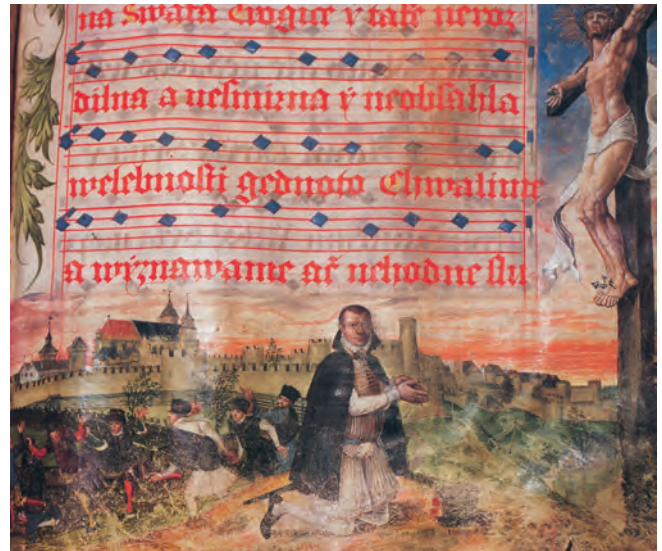 na Swata Trogice y take neroz
dilna a nesmirna y neobsahla
welebnosti gednoto Chwalime
a wyznawame ač nehodne slu